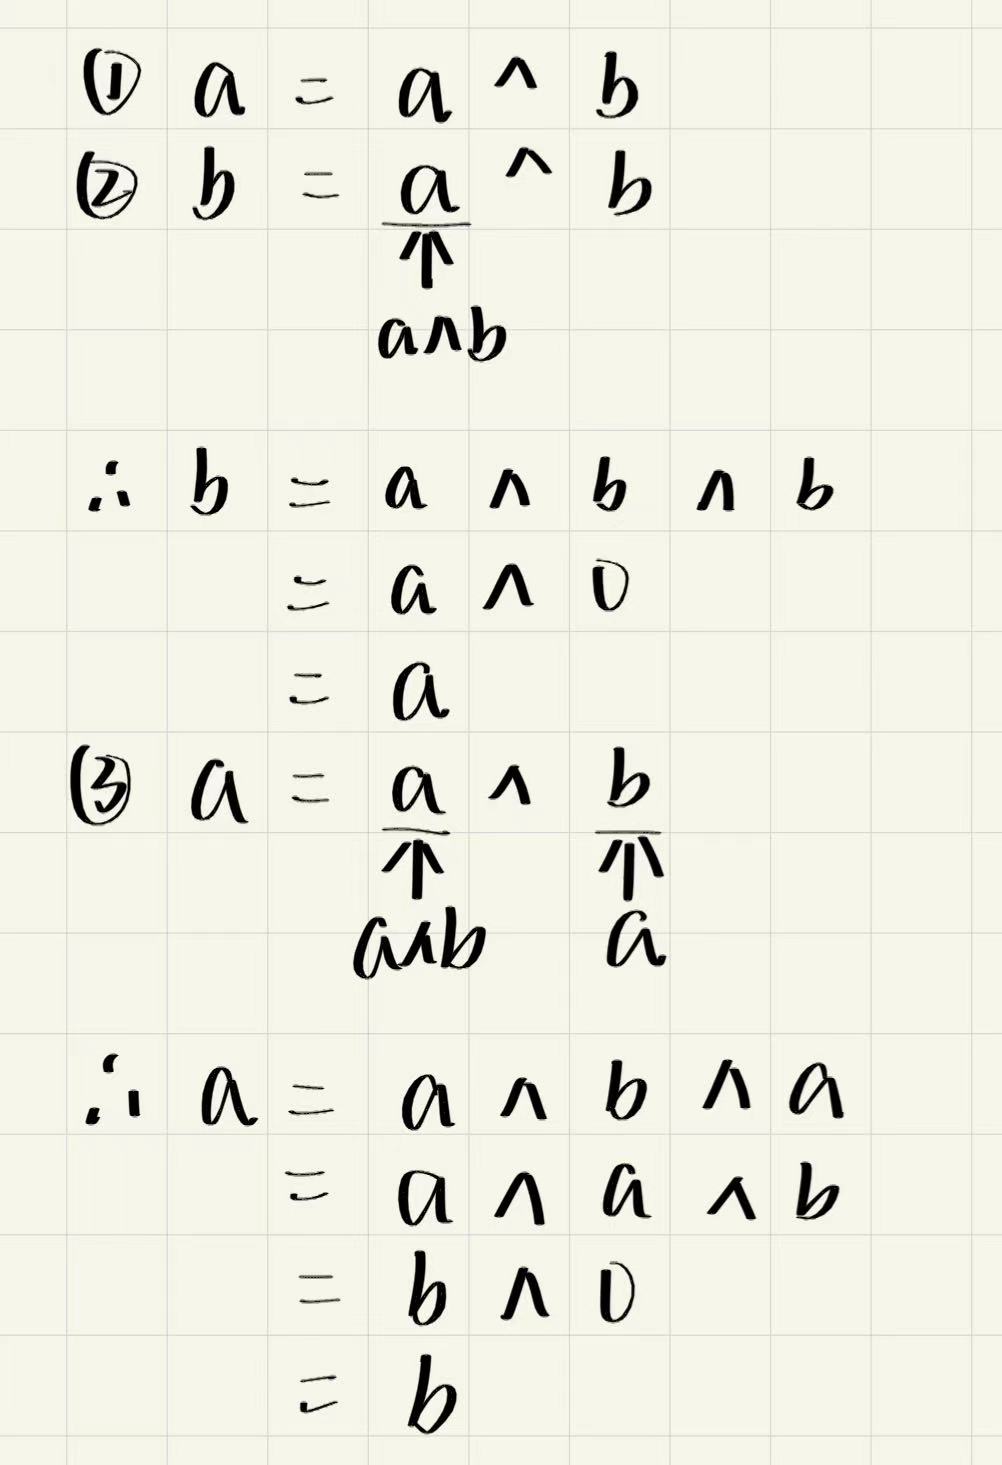 ① a = a ^ b
② b = a ^ b
↑
a∧b
∴ b = a ∧ b ∧ b
= a ∧ 0
= a
③ a = a ∧ b
↑ ↑
a∧b a
∴ a = a ∧ b ∧ a
= a ∧ a ∧ b
= b ∧ 0
= b